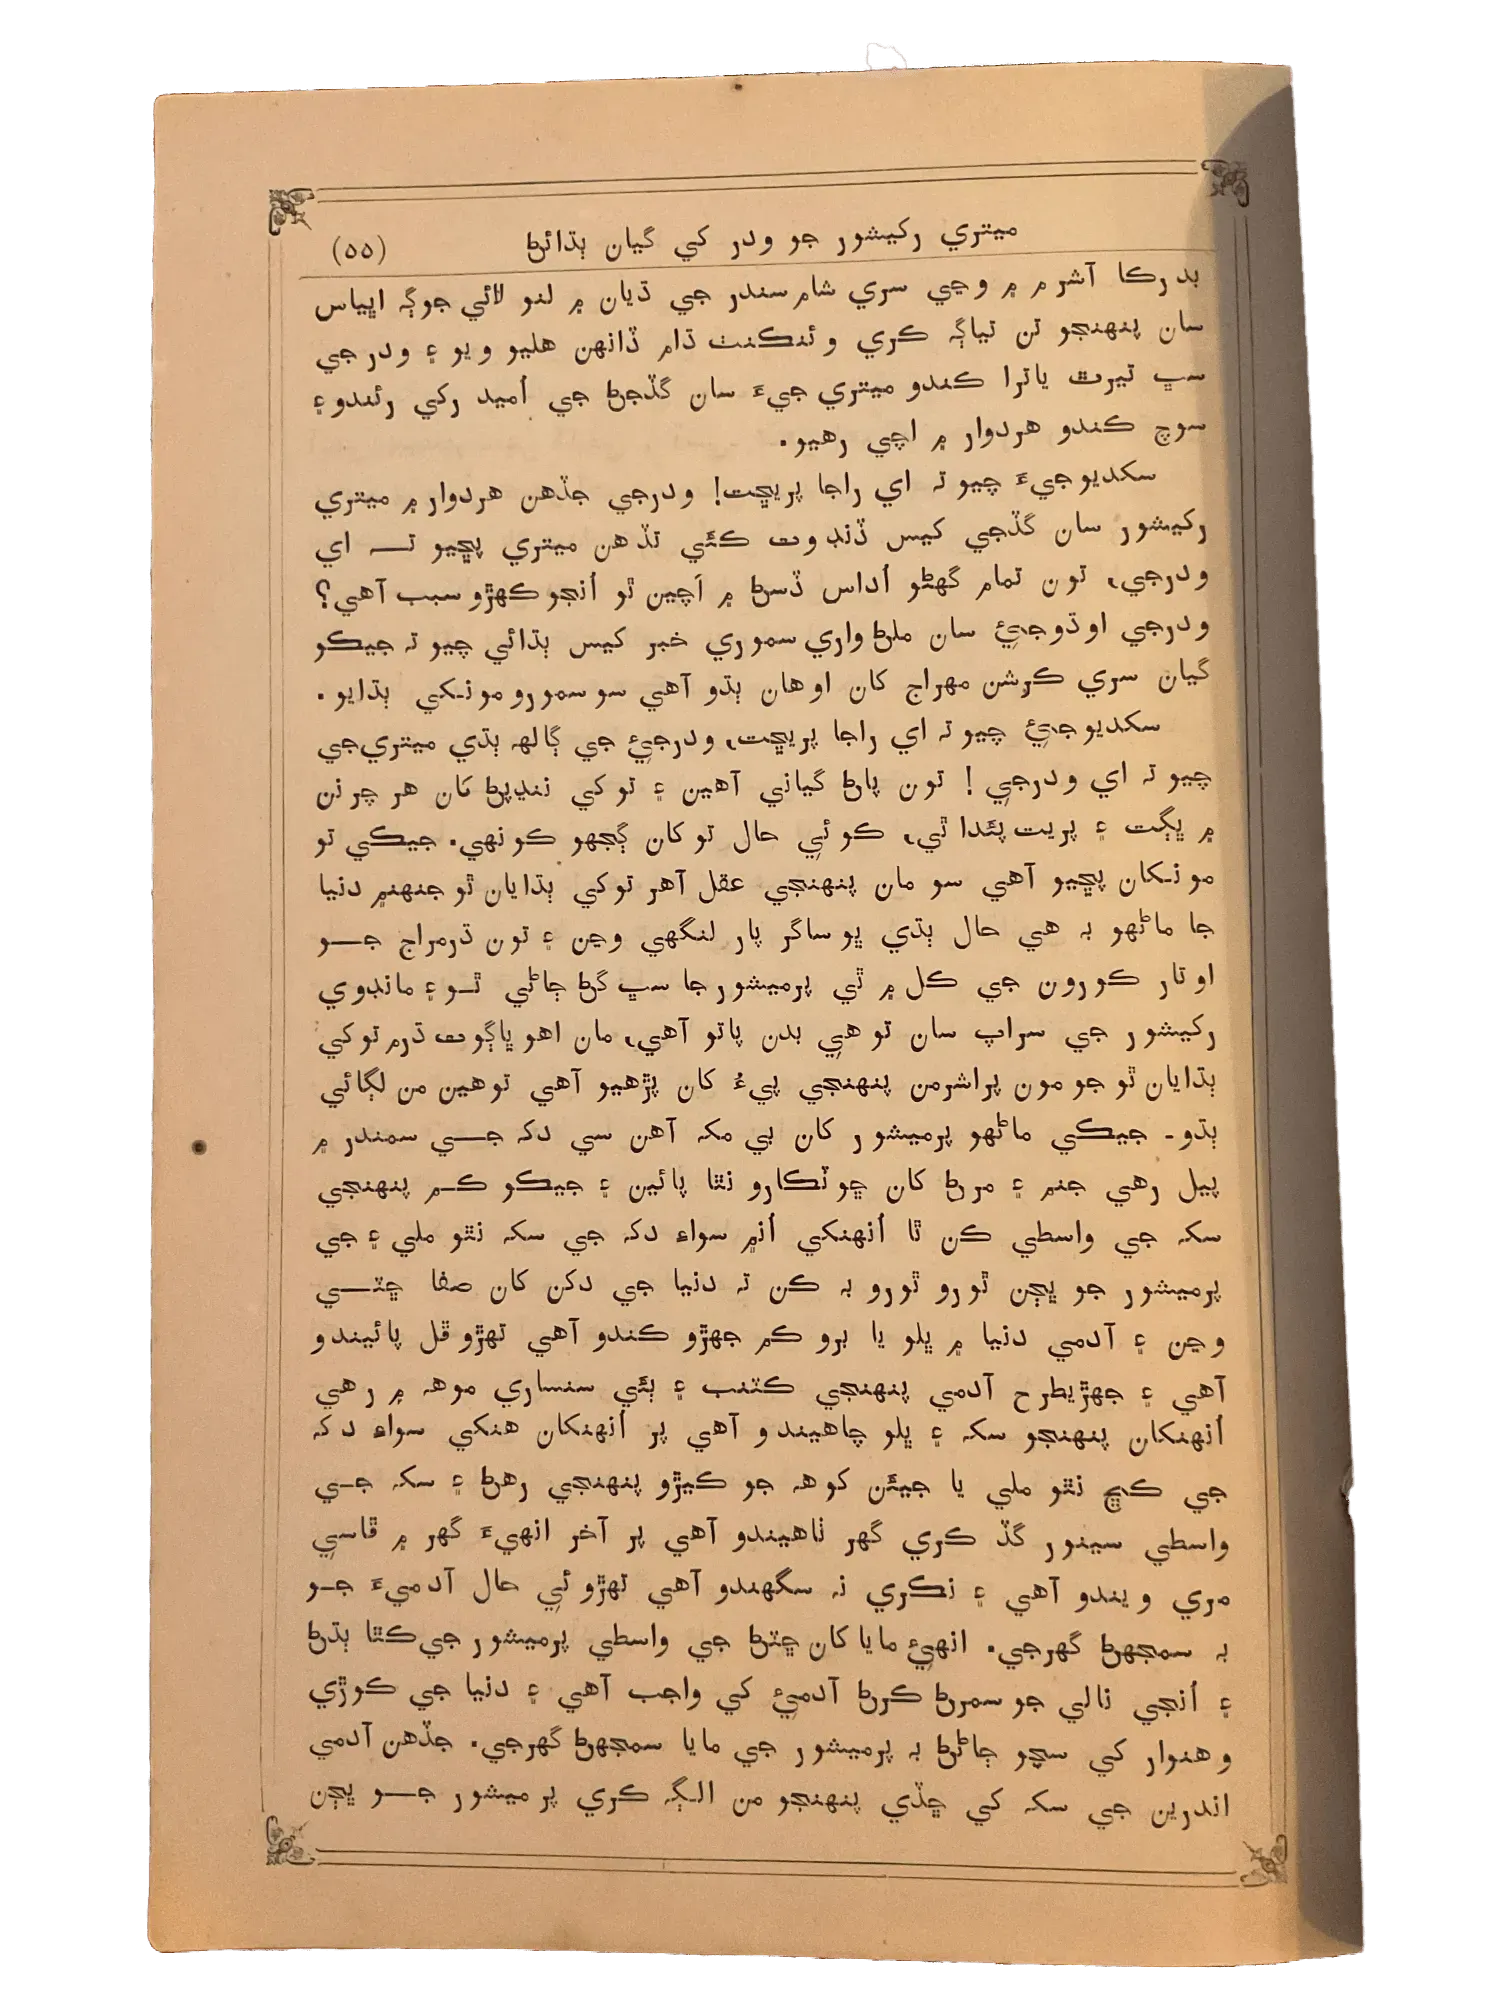 ميتري رکيشور جو ودر کي گيان ٻڌائڻ (٥٥)
بدرڪا آشرم ۾ وڃي سري شام سندر جي ڌيان ۾ لنو لائي جوڳہ اڀياس
سان پنهنجو تن تياڳہ ڪري وئنڪنٺ ڌام ڏانهن هليو ويو ۽ ودرجي
سڀ تيرٿ ياترا ڪندو ميتري جيءَ سان گڏجڻ جي اُميد رکي رئندو ۽
سوچ ڪندو هردوار ۾ اچي رهيو.
سکديوجيءَ چيو تہ اي راجا پريڇت! ودرجي جڏهن هردوار ۾ ميتري
رکيشور سان گڏجي کيس ڏنڊوت ڪئي تڏهن ميتري پڇيو تــہ اي
ودرجي، تون تمام گهڻو اُداس ڏسڻ ۾ اَچين ٿو اُنجو ڪهڙو سبب آهي؟
ودرجي اوڌوجيءَ سان ملڻ واري سموري خبر کيس ٻڌائي چيو تہ جيڪو
گيان سري ڪرشن مهراج کان اوهان ٻڌو آهي سو سمورو مونکي ٻڌايو.
سکديوجيءَ چيو تہ اي راجا پريڇت، ودرجيءَ جي ڳالهہ ٻڌي ميتريجي
چيو تہ اي ودرجي! تون پاڻ گياني آهين ۽ توکي ننڍپڻ کان هر چرنن
۾ ڀڳت ۽ پريت پئدا ٿي، ڪوئي حال توکان ڳجهو ڪونهي. جيڪي تو
مونکان پڇيو آهي سو مان پنهنجي عقل آهر توکي ٻڌايان ٿو جنهن۾ دنيا
جا ماڻهو بہ هي حال ٻڌي ڀو ساگر پار لنگهي وڃن ۽ تون ڌرمراج جــو
اوتار ڪورون جي ڪل ۾ ٿي پرميشور جا سڀ گڻ ڄاڻي ٿــو ۽ مانڊوي
رکيشور جي سراپ سان تو هي بدن پاتو آهي، مان اهو ڀاڳوت ڌرم توکي
ٻڌايان ٿو جو مون پراشرمن پنهنجي پيءُ کان پڙهيو آهي تو هين من لڳائي
ٻڌو۔ جيڪي ماڻهو پرميشور کان بي مکہ آهن سي دکہ جــي سمندر ۾
پيل رهي جنم ۽ مرڻ کان ڇوٽڪارو نٿا پائين ۽ جيڪو ڪـم پنهنجي
سکہ جي واسطي ڪن ٿا اُنهنکي اُن۾ سواءِ دکہ جي سکہ نٿو ملي ۽ جي
پرميشور جو ڀڄن ٿورو ٿورو بہ ڪن تہ دنيا جي دکن کان صفا ڇٽــي
وڃن ۽ آدمي دنيا ۾ ڀلو يا برو ڪم جهڙو ڪندو آهي تهڙو ڦل پائيندو
آهي ۽ جهڙيطرح آدمي پنهنجي ڪٽنب ۽ ٻئي سنساري موهہ ۾ رهي
اُنهنکان پنهنجو سکہ ۽ ڀلو چاهيندو آهي پر اُنهنکان هنکي سواءِ دکہ
جي ڪڇ نٿو ملي يا جيئن کوهہ جو ڪيڙو پنهنجي رهڻ ۽ سکہ جـي
واسطي سينور گڏ ڪري گهر ٺاهيندو آهي پر آخر انهيءَ گهر ۾ ڦاسي
مري ويندو آهي ۽ نڪري نہ سگهندو آهي تهڙوئي حال آدميءَ جـو
بہ سمجهڻ گهرجي. انهيءَ مايا کان ڇٽڻ جي واسطي پرميشور جي ڪٿا ٻڌڻ
۽ اُنجي نالي جو سمرڻ ڪرڻ آدميءَ کي واجب آهي ۽ دنيا جي ڪوڙي
وهنوار کي سچو ڄاڻڻ بہ پرميشور جي مايا سمجهڻ گهرجي. جڏهن آدمي
اندرين جي سکہ کي ڇڏي پنهنجو من الـڳہ ڪري پرميشور جــو ڀڄن